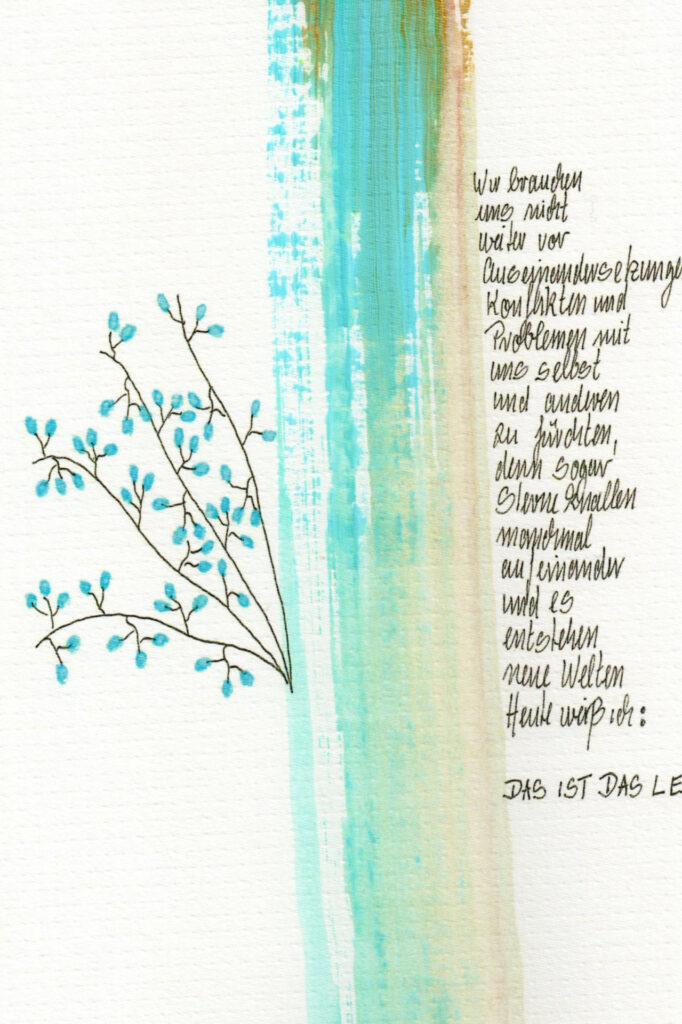 Wir brauchen
uns nicht
weiter vor
Auseinandersetzunge
Konflikten und
Problemen mit
uns selbst
und anderen
zu fürchten,
denn sogar
Sterne knallen
manchmal
aufeinander
und es
entstehen
neue Welten
Heute weiß ich:
DAS IST DAS LE